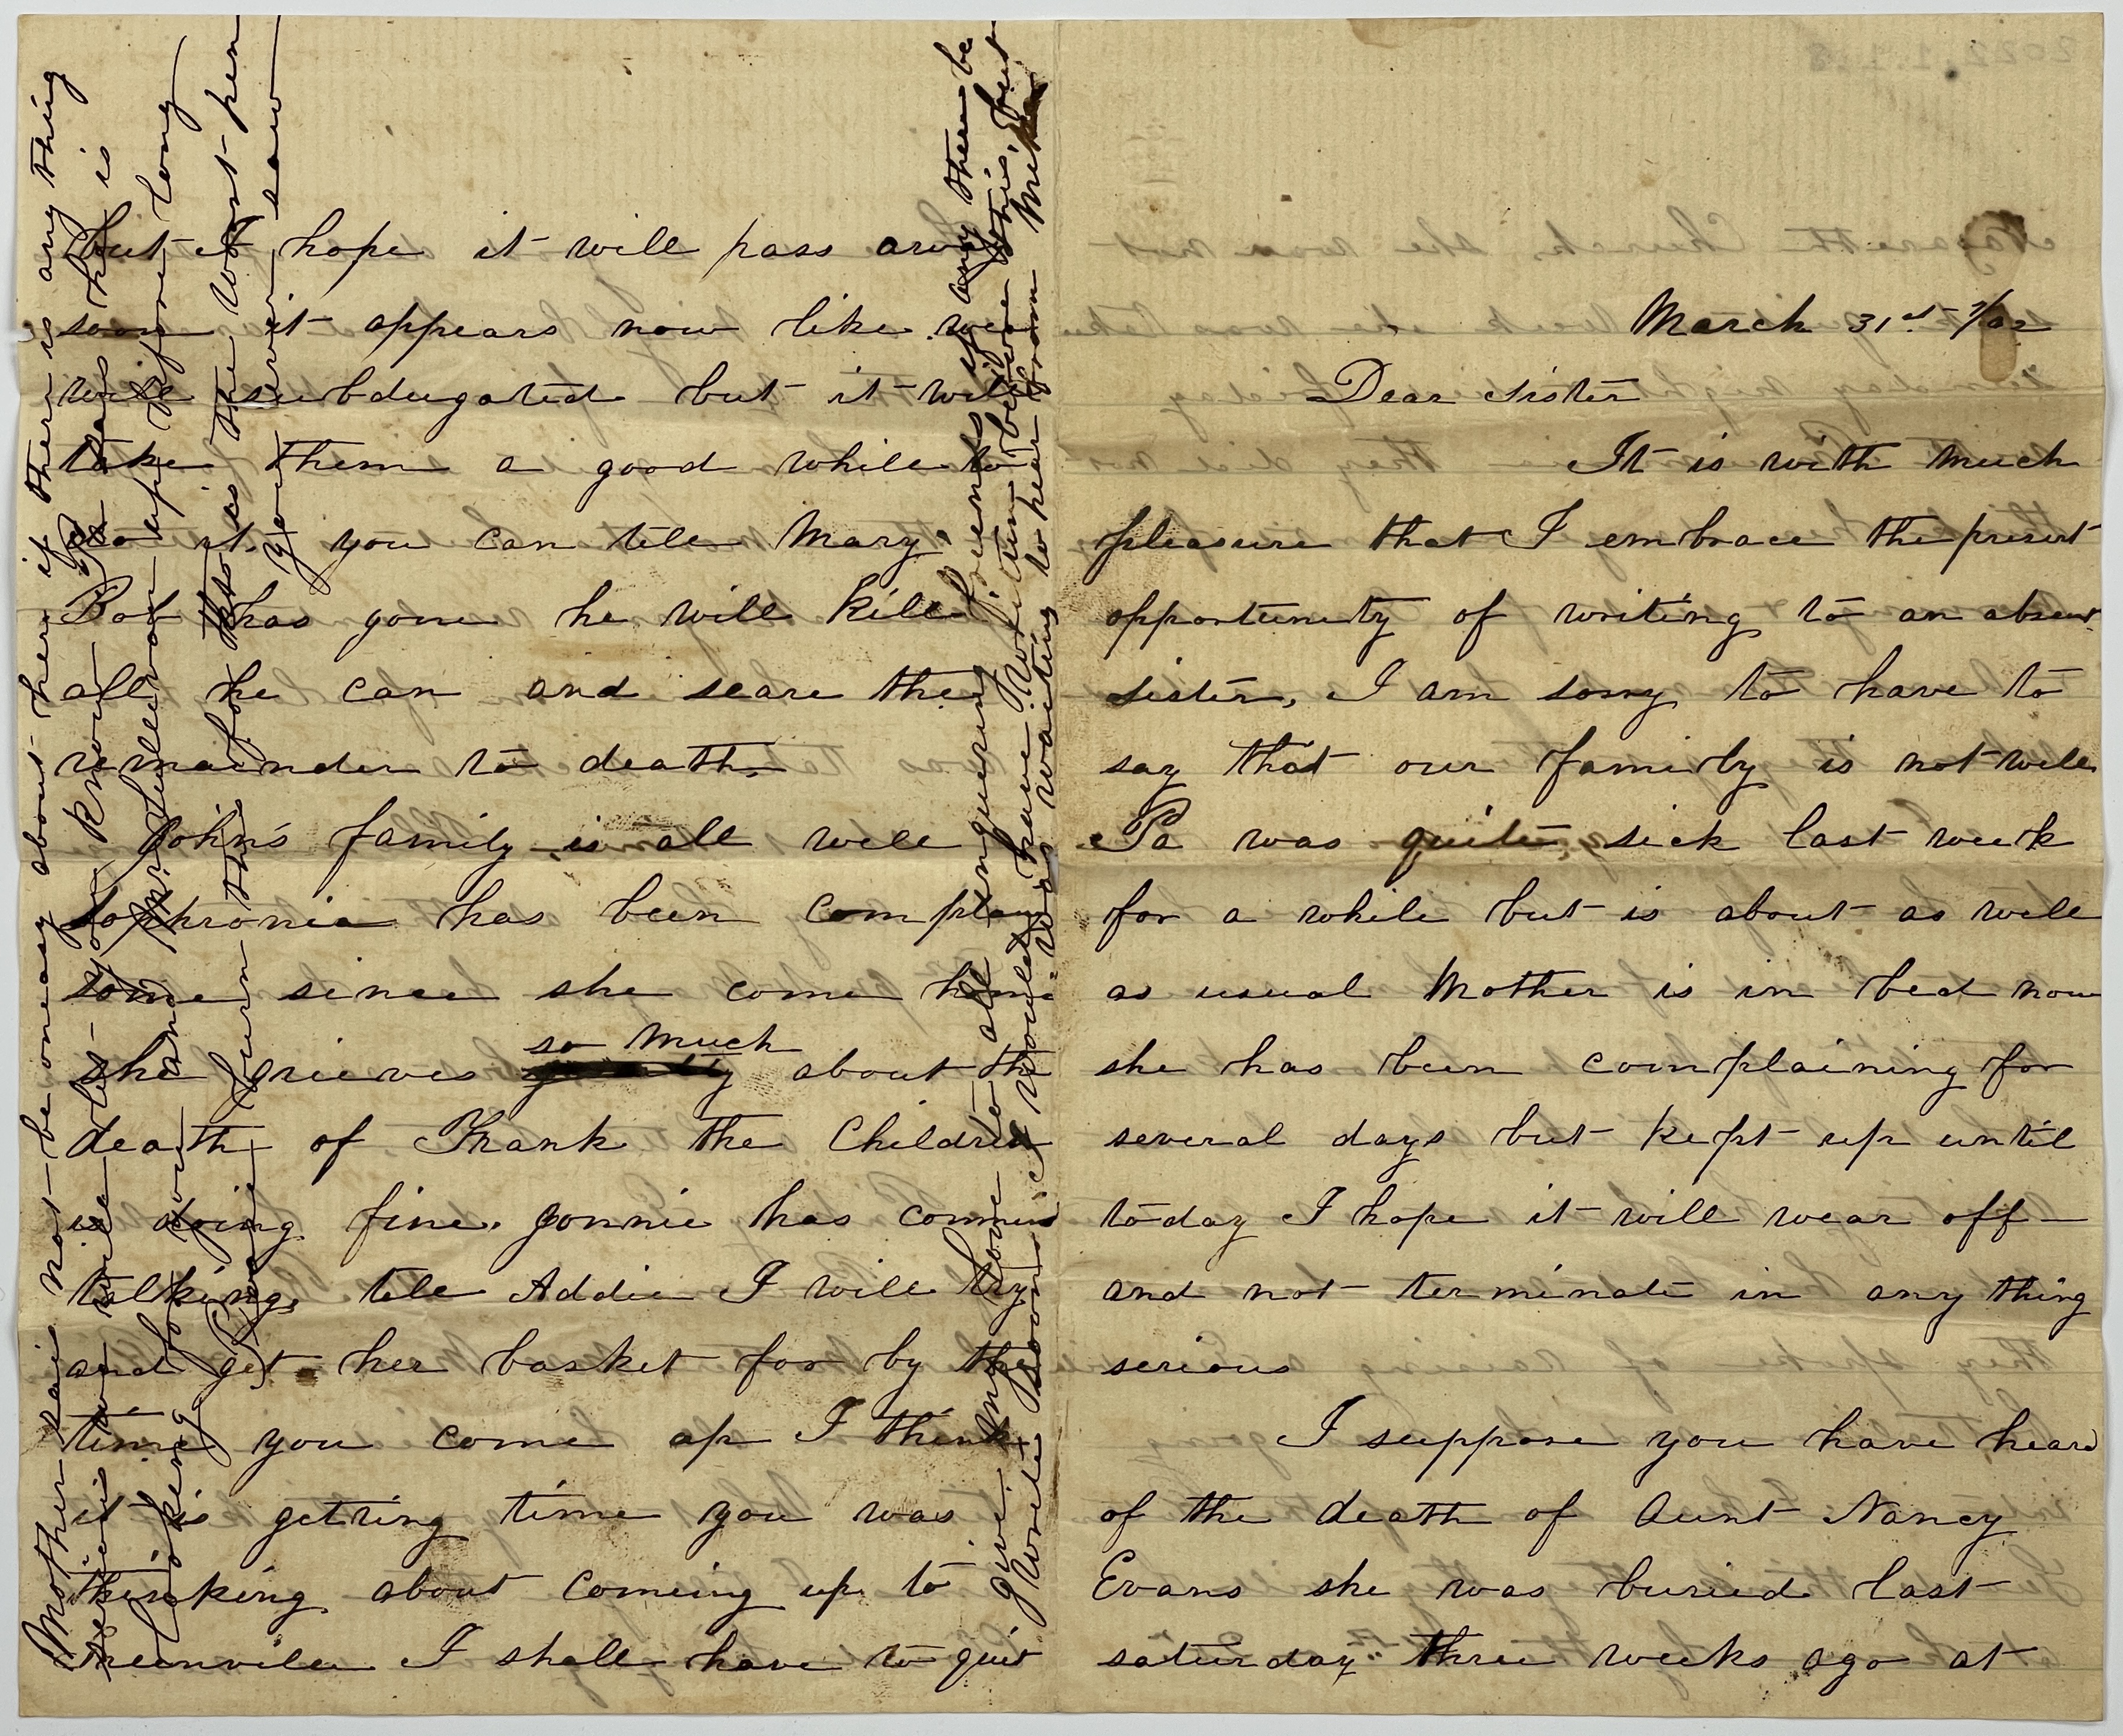 March 31st /62
Dear Sister
It is with much
pleasure that I embrace the present
opportunity of writing to an absent
sister, I am sorry to have to
say that our family is not well
Pa was quite sick last week
for a while but is about as well
as usual Mother is in bed now
she has been complaining for
several days but kept up until
today I hope it will wear off
and not terminate in any thing
serious
I suppose you have heard
of the death of Aunt Nancy
Evans she was buried last
saturday three weeks ago at
but I hope it will pass away
soon it appears now like we
will subdugated but it will
take them a good while to
do it. you can tell Mary
Bob has gone he will kill
all he can and scare the
remainder to death.
John's family is all well
Sophronia has been complain
some since she come home
she grieves so much about the
death of Frank the Children
is doing fine. Jonnie has commend
talking, tell Addie I will try
and get her basket for by the
time you come up I think
it is getting time you was
thinking about coming up to
Greenville I shall have to quit
Mother said not be oneasy about her if there is any thing
serious we will let you know
looking for you and up before long
Please burn this for this is the worst pen
you ever saw
give my love to all enquiring friends if any there be
Write soon. I would have written before this, but
was waiting to hear from Mike